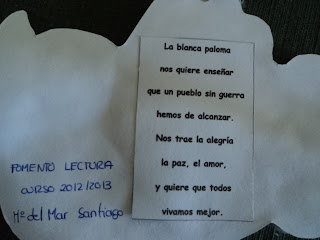 La blanca paloma
nos quiere enseñar
que un pueblo sin guerra
hemos de alcanzar.
Nos trae la alegría
la paz, el amor,
y quiere que todos
vivamos mejor.
FOMENTO LECTURA
CURSO 2012/2013
Mª del Mar Santiago